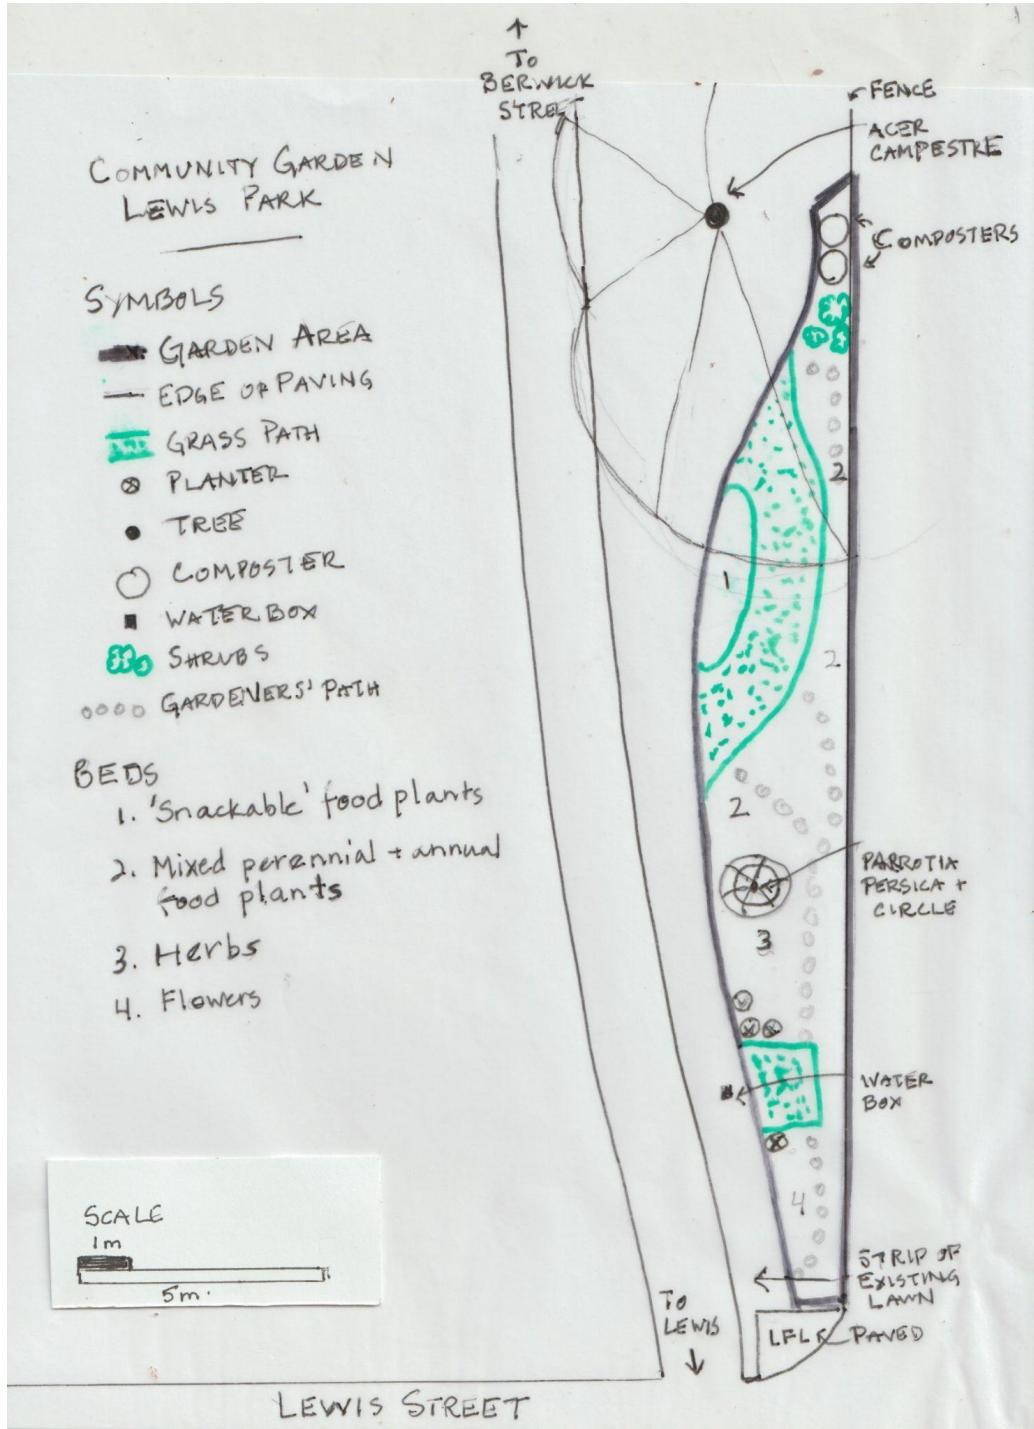 ↑
To
BERWICK
STREET
COMMUNITY GARDEN
LEWIS PARK
SYMBOLS
GARDEN AREA
EDGE OF PAVING
GRASS PATH
PLANTER
TREE
COMPOSTER
WATER BOX
SHRUBS
GARDENERS' PATH
BEDS
1. 'Snackable' food plants
2. Mixed perennial + annual
food plants
3. Herbs
4. Flowers
SCALE
1m
5m.
FENCE
ACER
CAMPESTRE
COMPOSTERS
2
1
2
2
PARROTIA
PERSICA +
CIRCLE
3
WATER
BOX
4
STRIP OF
EXISTING
LAWN
TO
LEWIS
↓
LFLK PAVED
LEWIS STREET